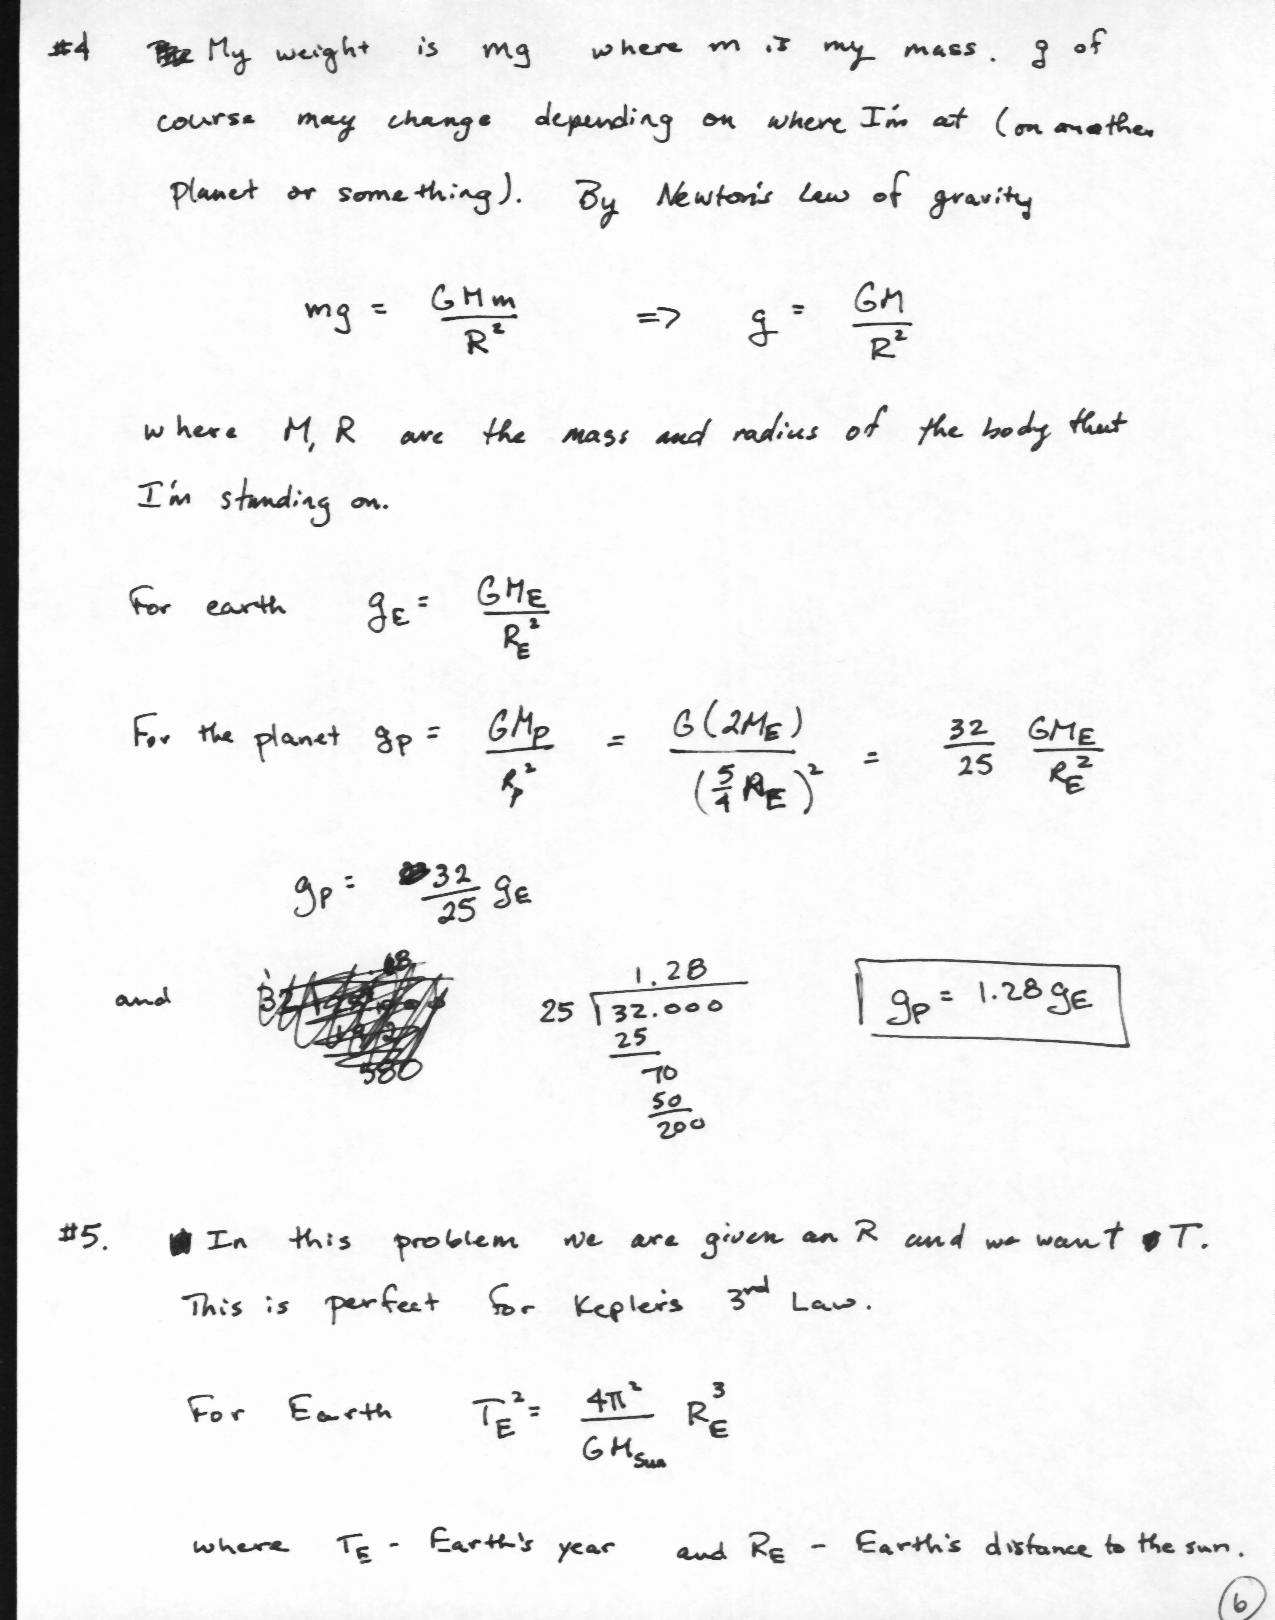 #4 My weight is mg where m is my mass. g of
course may change depending on where I'm at (on another
planet or something). By Newton's Law of gravity
mg = GMm/R² => g = GM/R²
where M, R are the mass and radius of the body that
I'm standing on.
For earth g_E = GM_E/R_E²
For the planet g_P = GM_P/R_P² = G(2M_E)/(5/4 R_E)² = 32/25 GM_E/R_E²
g_P = 32/25 g_E
and
1.28
25 32.000
25
70
50
200
g_P = 1.28 g_E
#5. In this problem we are given an R and we want T.
This is perfect for Kepler's 3rd Law.
For Earth T_E² = 4π²/GM_Sun R_E³
where T_E - Earth's year and R_E - Earth's distance to the sun.
6